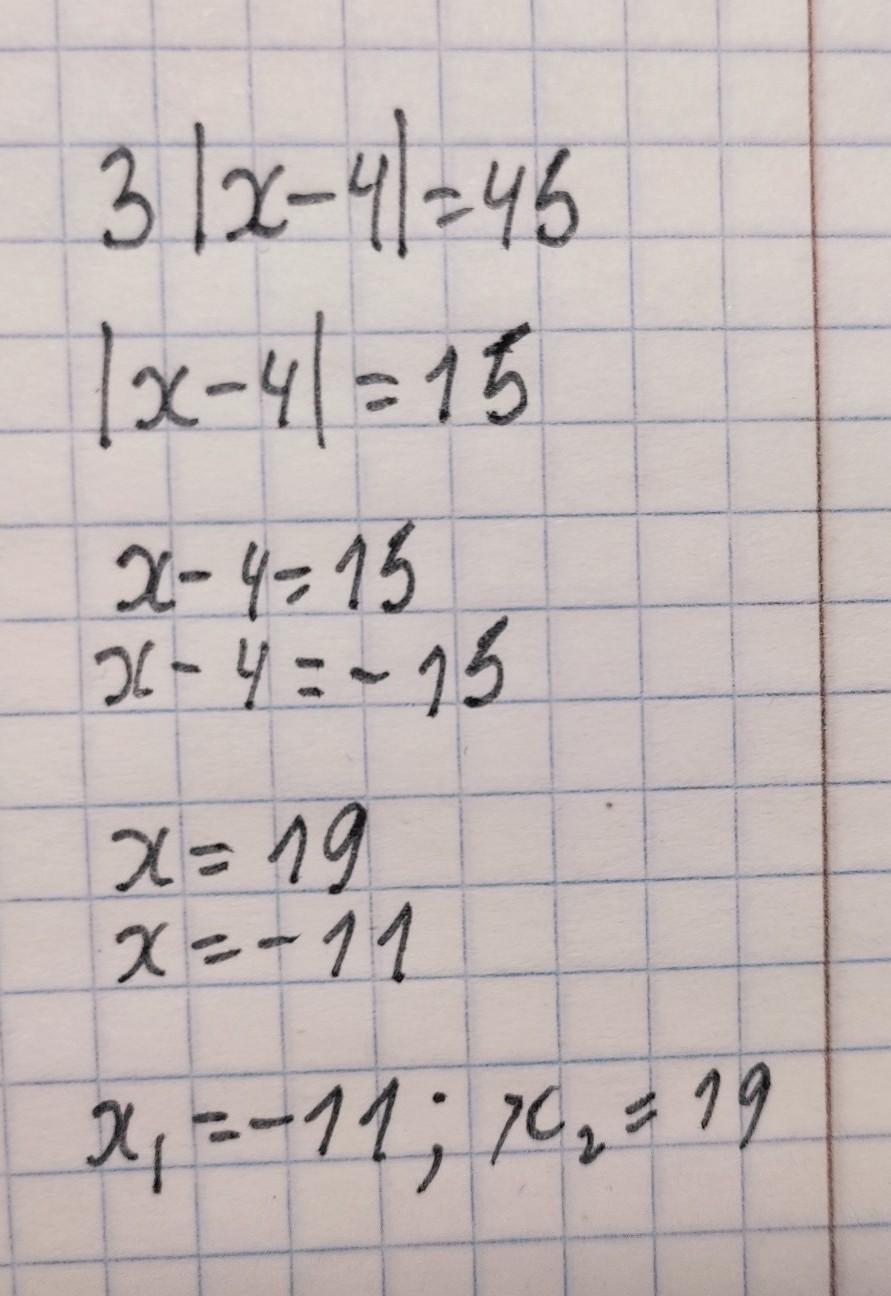 3 |x-4|=45
|x-4| = 15
x- 4= 15
x- 4 = - 15
x= 19
x=- 11
x₁ =-11; x₂= 19